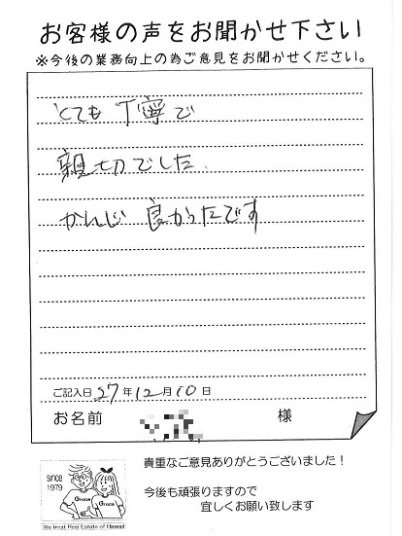 お客様の声をお聞かせ下さい
※今後の業務向上の為ご意見をお聞かせください。
とても丁寧で
親切でした.
かんじ 良かったです
ご記入日 27 年 12 月 10 日
お名前 様
貴重なご意見ありがとうございました！
since
1979
Grace
Grace
今後も頑張りますので
宜しくお願い致します
We love! Real Estate of Hawaii